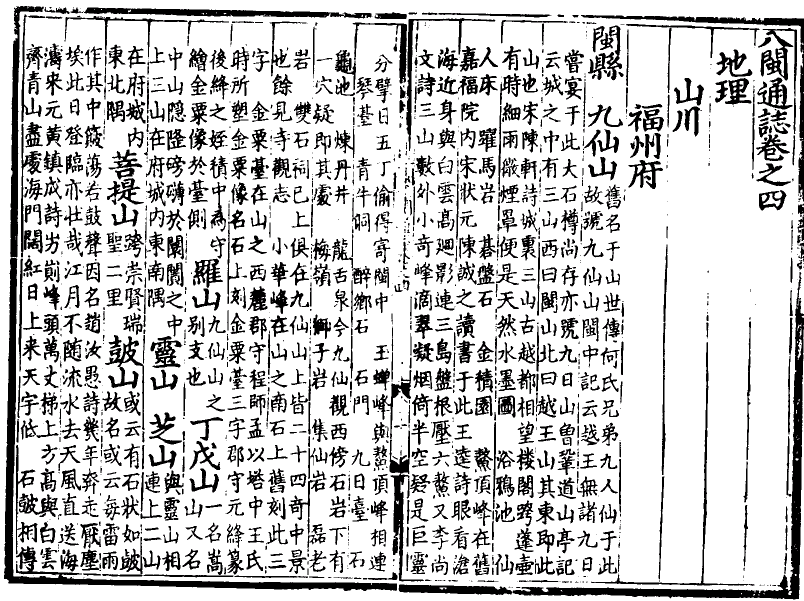 八閩通誌卷之四
地理
山川
福州府
閩縣 九仙山 舊名于山世傳何氏兄弟九人仙于此
故號九仙山閩中記云越王無諸九日
嘗宴于此大石樽尚存亦號九日山曾鞏道山亭記
云城之中有三山西曰閩山北曰越王山其東即此
山也宋陳軒詩城裏三山古越都相望樓閣跨蓬壺
有時細雨微煙罩便是天然水墨圖 浴鴉池 仙
人床 躍馬岩 碁盤石 金積園 鰲頂峰在舊
嘉福院内宋狀元陳誠之讀書于此王逵詩眼看滄
海近身與白雲高廻影連三島盤根壓六鰲又李尚
文詩三山數外小奇峰滴翠凝烟倚半空疑是巨靈
分擘日五丁偷得寄閩中 玉蟬峰與鰲頂峰相連
琴基 青牛洞 醉鄉石 石門 九日臺 石
龜池 煉丹井 龍舌泉今九仙觀西傍石岩下有
一穴疑即其處 梅嶺 獅子岩 集仙岩 磊老
岩 雙石祠已上俱在九仙山上皆二十四奇中景
也餘見寺觀志 小華峰在山之南石上舊刻此三
字 金粟臺在山之西麓郡守程師孟以塔中王氏
時所塑金粟像名石上刻金粟臺三字郡守元絳篆
後絳之姪積中為守
繪金粟像於臺側 羅山 九仙山之
别支也 丁戊山 一名嵩
山又名
中山隱隆磅礴於闤闠之中 靈山 芝山 與靈山相
連上二山
上三山在府城内東南隅
在府城内
東北隅 菩提山 跨崇賢瑞
聖二里 鼓山 或云有石狀如鼓
故名或云每雷雨
作其中簸蕩若鼓聲因名趙汝愚詩幾年奔走厭塵
埃此日登臨亦壯哉江月不随流水去天風直送海
濤來元黄鎮成詩屴崱峰頭萬丈梯上方高與白雲
齊青山盡處海門闊紅日上来天宇低 石鼓相傳